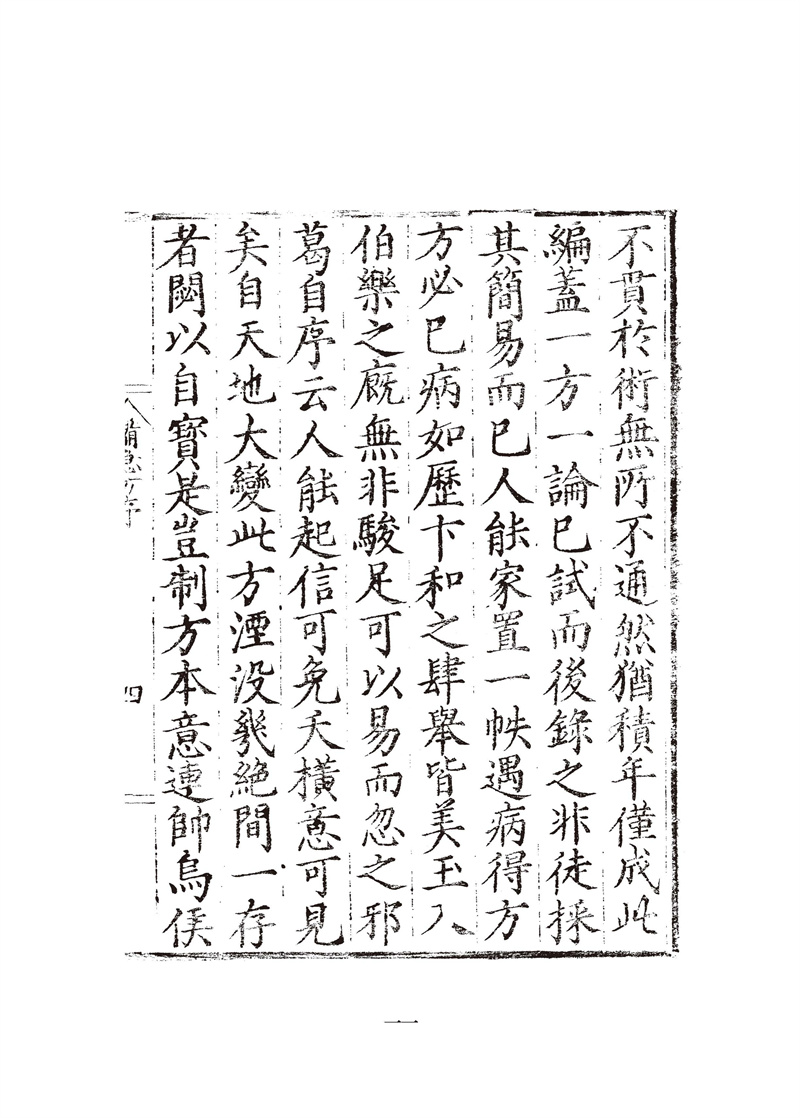 不貫於術無所不通然猶積年僅成此
編蓋一方一論已試而後錄之非徒採
其簡易而已人能家置一帙遇病得方
方必已病如歷卞和之肆舉皆美玉入
伯樂之廐無非駿足可以易而忽之邪
葛自序云人能起信可免夭橫意可見
矣自天地大變此方湮沒幾絕間一存
者閟以自寶是豈制方本意連帥烏侯
備急方序
四
一